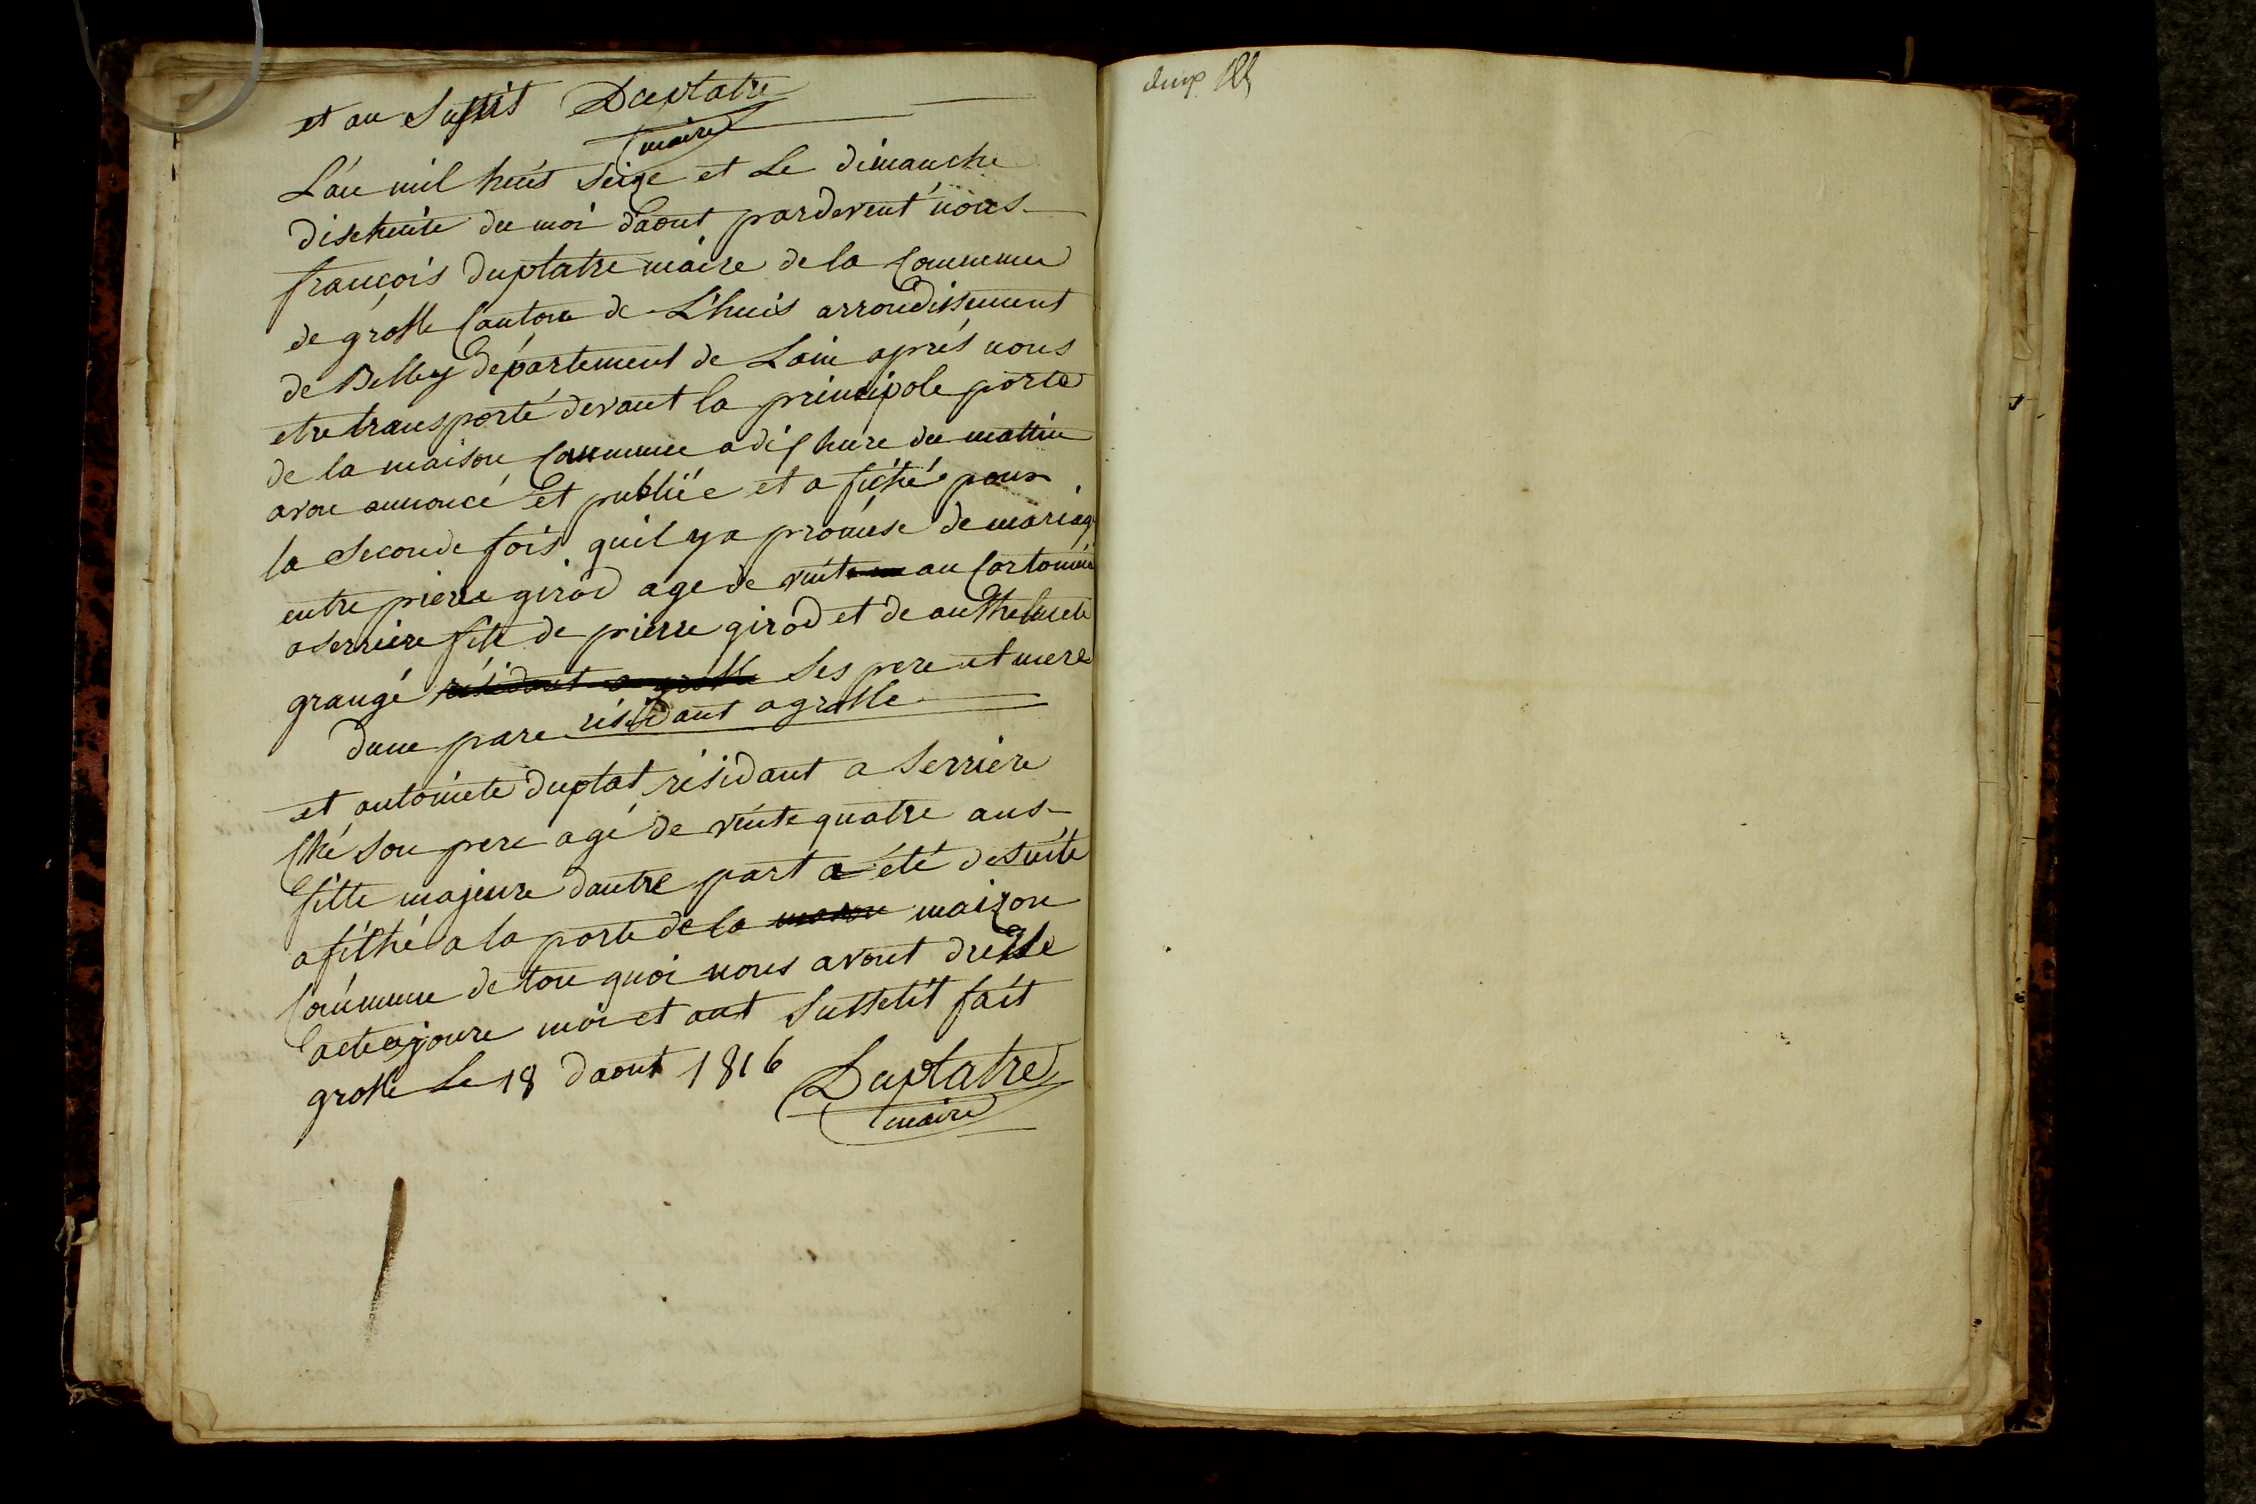 et au Susdit Duplatre
maire
L'an mil huit Seize et Le dimanche
dixhuite du moi daout pardevent nous
françois duplatre maire de la Commune
de groslle Canton de Lhuis arrondissement
de Belley département de Lain aprés nous
etre transporté devant la principale porte
de la maison Commune a dix hure du mattin
avon annoncé et publiée et afiché pour
la Seconde fois quil y a promese de mariag
entre pierre girod age de vint an Cortonnié
a Serriere fils de pierre girod et de anthelmete
grangé residant a groslle Ses pere et mere
dune pare résidant a groslle
et antoinete duplat résidant a Serriére
Ché Son pere agé de vinte quatre ans
fille majeure dautre part a été desuite
afiché a la porte de la maison maizon
Commune de tou quoi nous avont dresse
acte a joure moi et ant Susselit fait
groslle Le 18 daout 1816 Duplatre
maire